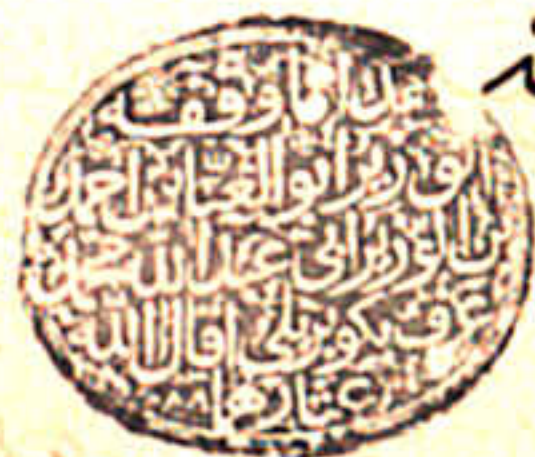 هذا مما وقفه
الوزير ابو العباس احمد
بن الوزير ابي عبد الله محمد
عرف بكوبريلي اقال الله
عثارهما ٠٨٨